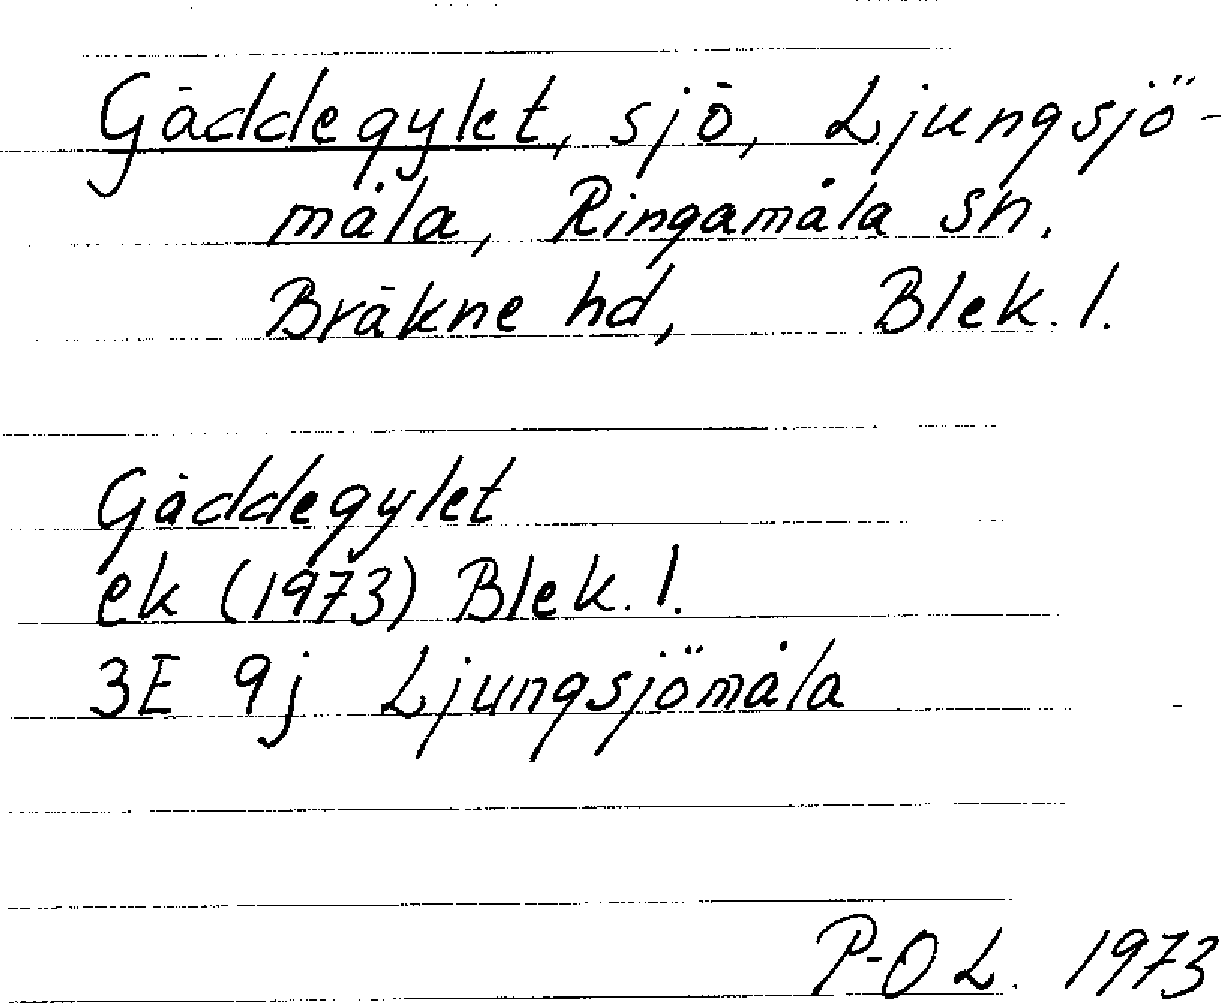 Gäddegylet, sjö, Ljungsjö-
måla, Ringamåla sn.
Bräkne hd, Blek. l.
Gäddegylet
ek (1973) Blek. l.
3E 9j Ljungsjömåla
P-O L. 1973